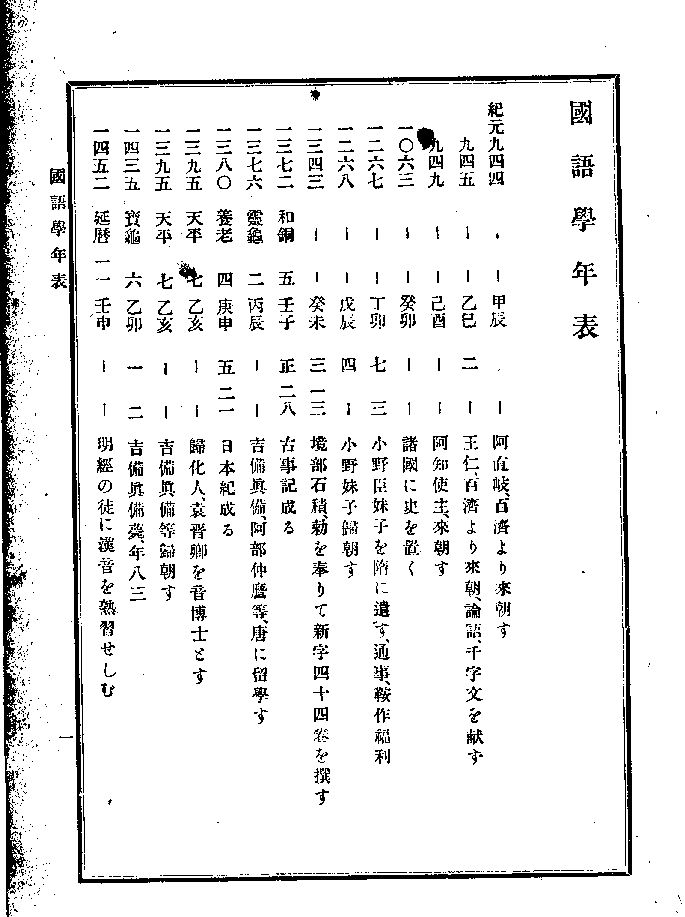 國語學年表
紀元九四四 ー ー 甲辰 ー 阿直岐、百濟より來朝す
九四五 ー ー 乙巳 二 ー 王仁、百濟より來朝、論語、千字文を献す
九四九 ー ー 己酉 ー ー 阿知使主、來朝す
一〇六三 ー ー 癸卯 ー ー 諸國に史を置く
一二六七 ー ー 丁卯 七 三 小野臣妹子を隋に遣す、通事、鞍作福利
一二六八 ー ー 戊辰 四 ー 小野妹子歸朝す
一三四三 ー ー 癸未 三 一三 境部石積、勅を奉りて新字四十四卷を撰す
一三七二 和銅 五 壬子 正 二八 古事記成る
一三七六 靈龜 二 丙辰 ー ー 吉備眞備、阿部仲麿等、唐に留學す
一三八〇 養老 四 庚申 五 二一 日本紀成る
一三九五 天平 七 乙亥 ー ー 歸化人、袁晋卿を音博士とす
一三九五 天平 七 乙亥 ー ー 吉備眞備等歸朝す
一四三五 寳龜 六 乙卯 一 二 吉備眞備薨、年八三
一四五二 延曆 一一 壬申 ー ー 明經の徒に漢音を熟習せしむ
國語學年表
一